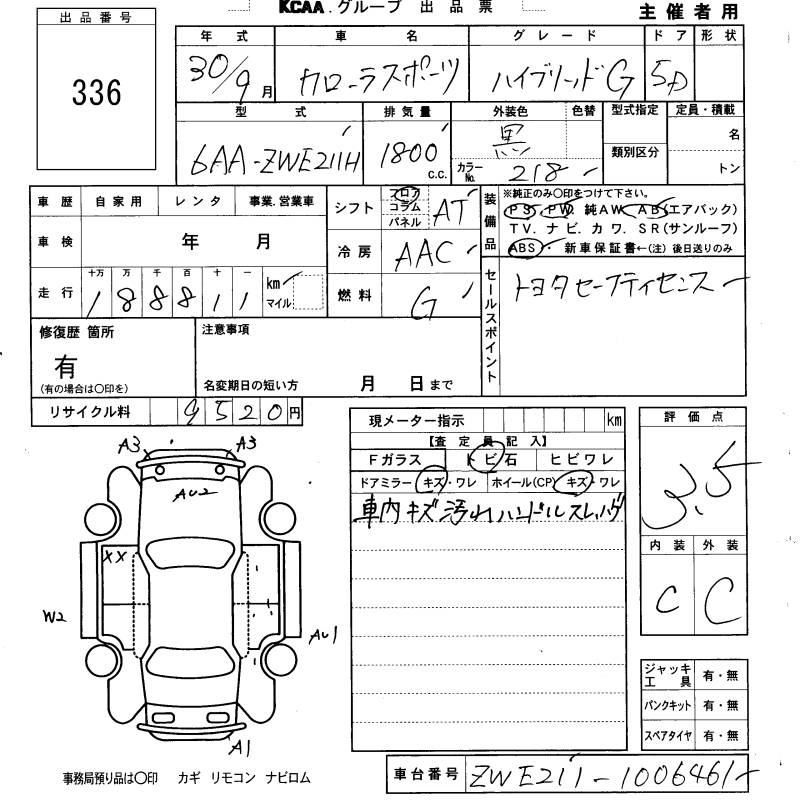 KCAA.グループ 出品票
主催者用
出品番号
336
年式 車名 グレード ドア 形状
30/9月 カローラスポーツ ハイブリッドG 5D
型式 排気量 外装色 色替 型式指定 定員・積載
6AA-ZWE211H 1800 C.C. 黒 カラーNo. 218 類別区分 名
トン
車歴 自家用 レンタ 事業.営業車
シフト フロア コラム パネル AT
装備品 ※純正のみ〇印をつけて下さい。
PS. PW. 純AW. AB(エアバック)
TV. ナビ. カワ. SR(サンルーフ)
ABS. 新車保証書←(注) 後日送りのみ
車検 年 月
冷房 AAC
走行 十万 万 千 百 十 一
188811 km マイル
燃料 G
セールスポイント トヨタセーフティセンス
修復歴 箇所
有
(有の場合は〇印を)
注意事項
名変期日の短い方 月 日まで
リサイクル料 9520円
現メーター指示 km
【査定員記入】
Fガラス トビ石 ヒビワレ
ドアミラー キズ・ワレ ホイール(CP) キズ・ワレ
車内キズ汚れハンドルスレ,ハゲ
評価点
3.5
内装 外装
C C
A3 A3
AU2
XX
W2
AU1
A1
ジャッキ工具 有・無
パンクキット 有・無
スペアタイヤ 有・無
事務局預り品は〇印 カギ リモコン ナビロム
車台番号 ZWE211-1006461